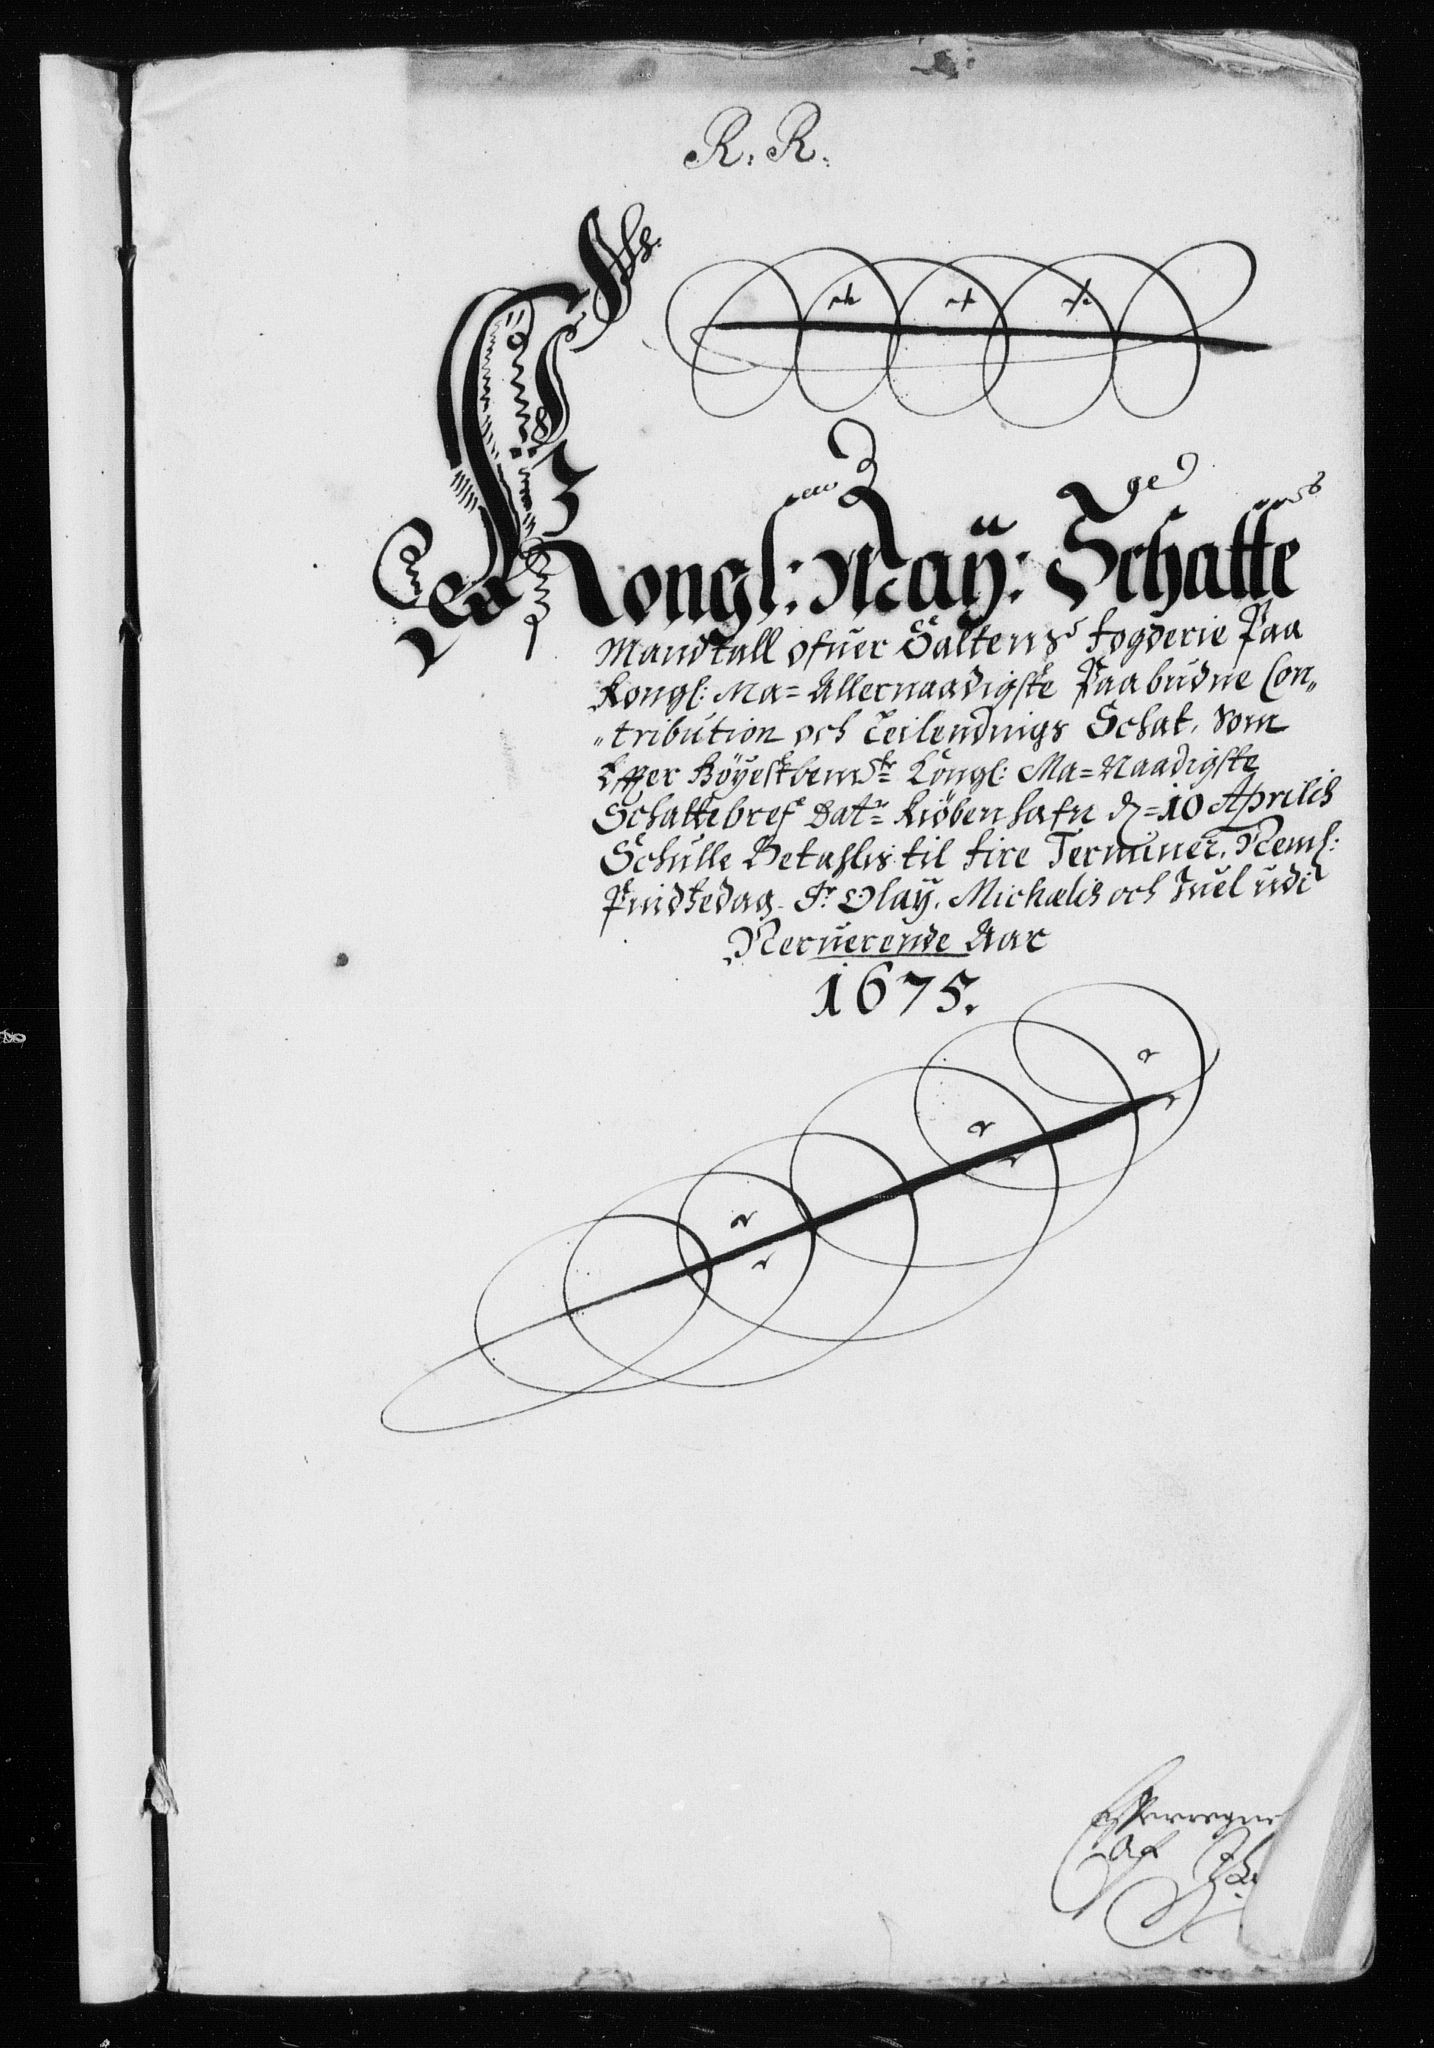 R. R.
Kongl: May: Schatte
Mandtall ofuer Saltens fogderie Paa
Kongl: Ma= Allernaadigste Paabudne Con„
„tribution och Leilendnigs Schat, Som
Effter Høyestbemte Kongl: Ma= Naadigste
Schattebref Dat: Kiøbenhafn d= 10 Aprilis
Schulle Betahlis til fire Terminer, Neml:
Pindtzedag. St Olay, Michælis och Juel udi
Neruerende Aar
1675.
Efterregne
Af